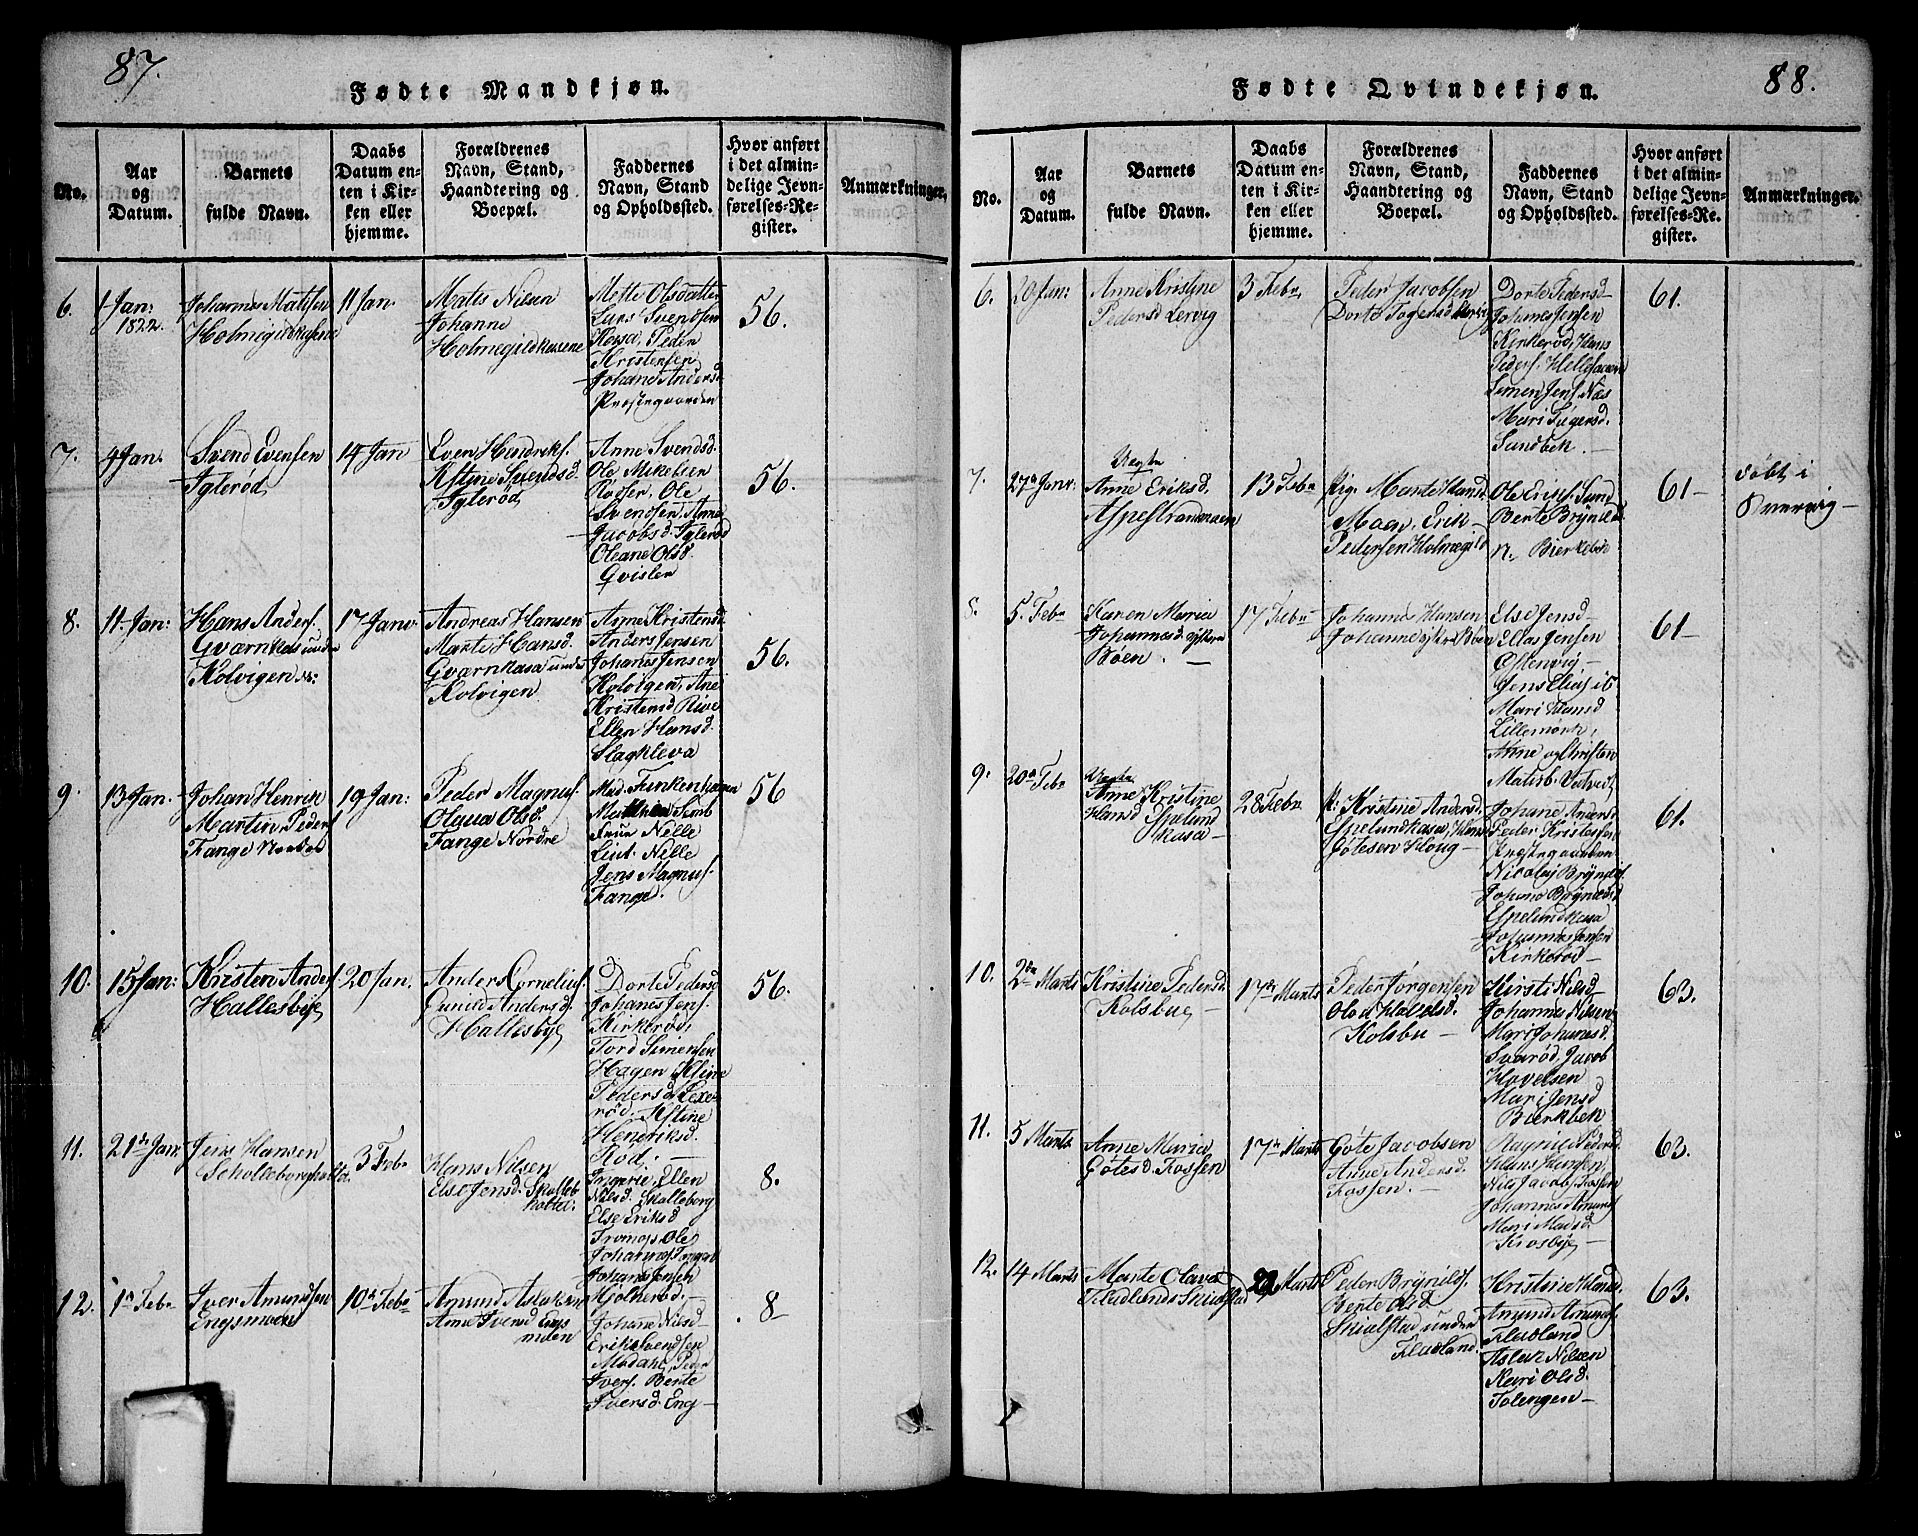 87.
Fødte Mandkjøn.
No.
Aar
og
Datum.
Barnets
fulde Navn.
Daabs
Datum en-
ten i Kir-
ken eller
hjemme.
Forældrenes
Navn, Stand,
Haandtering og
Boepæl.
Faddernes
Navn, Stand
og Opholdssted.
Hvor anført
i det almin-
delige Jevn-
førelses-Re-
gister.
Anmærkninger.
6.
1 Jan:
1822.
Johannes Matisen
11 Jan.
Matis Nilsen
Johanne
Holmegildkasene
Mette Olsdatter
Lars Svendsen
Peder
Kristensen
Johane Andersd
Præstegaarden
56.
7.
4 Jan.
Svend Evensen
Iglerød
14 Jan
Even Hendriks.
Kstine Svendsd.
Iglerød
Anne Svendsd.
Ole Mikelsen
Ole
Svendsen, Anne
Jacobsd. Iglerød
Oleane Olsd.
Qvislen
56.
8.
11 Jan:
Hans Anders.
Qværnkas under
Kolvigen
17 Janv.
Andreas Hansen
Marte Hansd.
Qværnkasa under
Kolvigen
Anne Kristensd
Anders Jensen
Johanes Jensen
Kolvigen, Ane
Kristensd Rive
Ellen Hansd.
Slagkleva
56.
9.
13 Jan.
Johan Henrik
Martin Peders
Fange Nordre
19 Jan:
Peder Magnus.
Olaua Olsd.
Fange Nordre
Mad. Funkenhagen
Fruе Nille
Liut. Nille
Jens Magnus.
Fange.
56
10.
15 Jan:
Kristen Anders.
Hallesbye
20 Jan.
Anders Cornelius.
Gunild Andersd.
Hallesbye
Dorte Pedersd
Johanes Jens.
Kirkerød,
Tord Simensen
Hagen, Kstine
Pedersd, Rexe-
rød, Kstine
Hendriksd.
Rod. —
56.
11.
21de Jan.
Jens Hansen
3 Feb.
Hans Nilsen
Else Jensd. Skalleb
holtet.
Ingerie, Ellen
Nilsd. Skalleborg
Else Eriksd
Ole
Johannes
Johanes Jensen
8.
12.
1te Feb.
Iver Amundsen
Engsmoen
10de Feb.
Amund Aslaksen
Anne Iversd Engs
moen
Johane Nilsd
Erik Svendsen
Peder
Ivers. Bente
Iversd. Eng —
8 —
88.
Fødte Qvindekjøn.
No.
Aar
og
Datum.
Barnets
fulde Navn.
Daabs
Datum en-
ten i Kir-
ken eller
hjemme.
Forældrenes
Navn, Stand,
Haandtering og
Boepæl.
Faddernes
Navn, Stand
og Opholdssted.
Hvor anført
i det almin-
delige Jevn-
førelses-Re
gister.
Anmærkninger.
6.
20 Jan:
Anne Kristine
Pedersd Lervig
3 Feb.
Peder Jacobsen
Dorte
Dorte Pedersd
Johanes Jensen
Kirkerød, Hans
Peders.
Simen Jens. Næs
Mari
Sundbek —
61.
7.
27de Janv.
Uægte
Anne Eriksd.
13 Feb.
Pig. Marte Hansd
Moen, Erik
Pedersen Holmegild
Ole Erics. Sund
Bente Brynilds
61 —
døbt i
8.
5. Feb.
Karen Maria
Johannesd
Bøen. —
17 Feb.
Johannes Hansen
Else Jensd
Elias Jensen
Ostenvig —
Jens Elias.
Mari Hansd
Lillemørk,
Anne og Christen
61 —
9.
20de Feb.
Uægte
Anne Kristine
Hansd Espelund
kasa —
28 Feb.
P: Kristine Andersd.
Espelundkasa, Hans
Gøtesen Houg —
Johane Andersd
Peder Kristensen
Præstegaarden
Nicolaj Brynilds
Johane Brynildsd
Espelundkasa
Johannes Jensen
Kirkerød —
61.
10.
2den Marts
Kristine Pedersd.
Kolsbue —
17de Marts
Peder Jørgensen
Olea Havelsd.
Kolsbu —
Kirsti Nilsd
Johannes Nilsen
Mari Johanesd.
Svarød, Jacob
Havelsen
Mari Jensd
Bierkbek
63.
11.
5 Marts
Anne Maria
Gøtesd. Fossen
17de Marts
Gøte Jacobsen
Anne Andersd.
Fossen. —
Ragnild Pedersd.
Hans Hansen,
Nils Jacobs. Fossen
Johannes Amunds
Mari Madsd.
Krosbye —
63.
12.
14 Marts
Marte Olava
Marts
Peder Brynilds.
Bente Olsd
Skialstad under
Fladland.
Kristine Hansd.
Amund Amunds.
Fladland
Aslak Nilsen
Kari Olsd.
Solengen —
63.